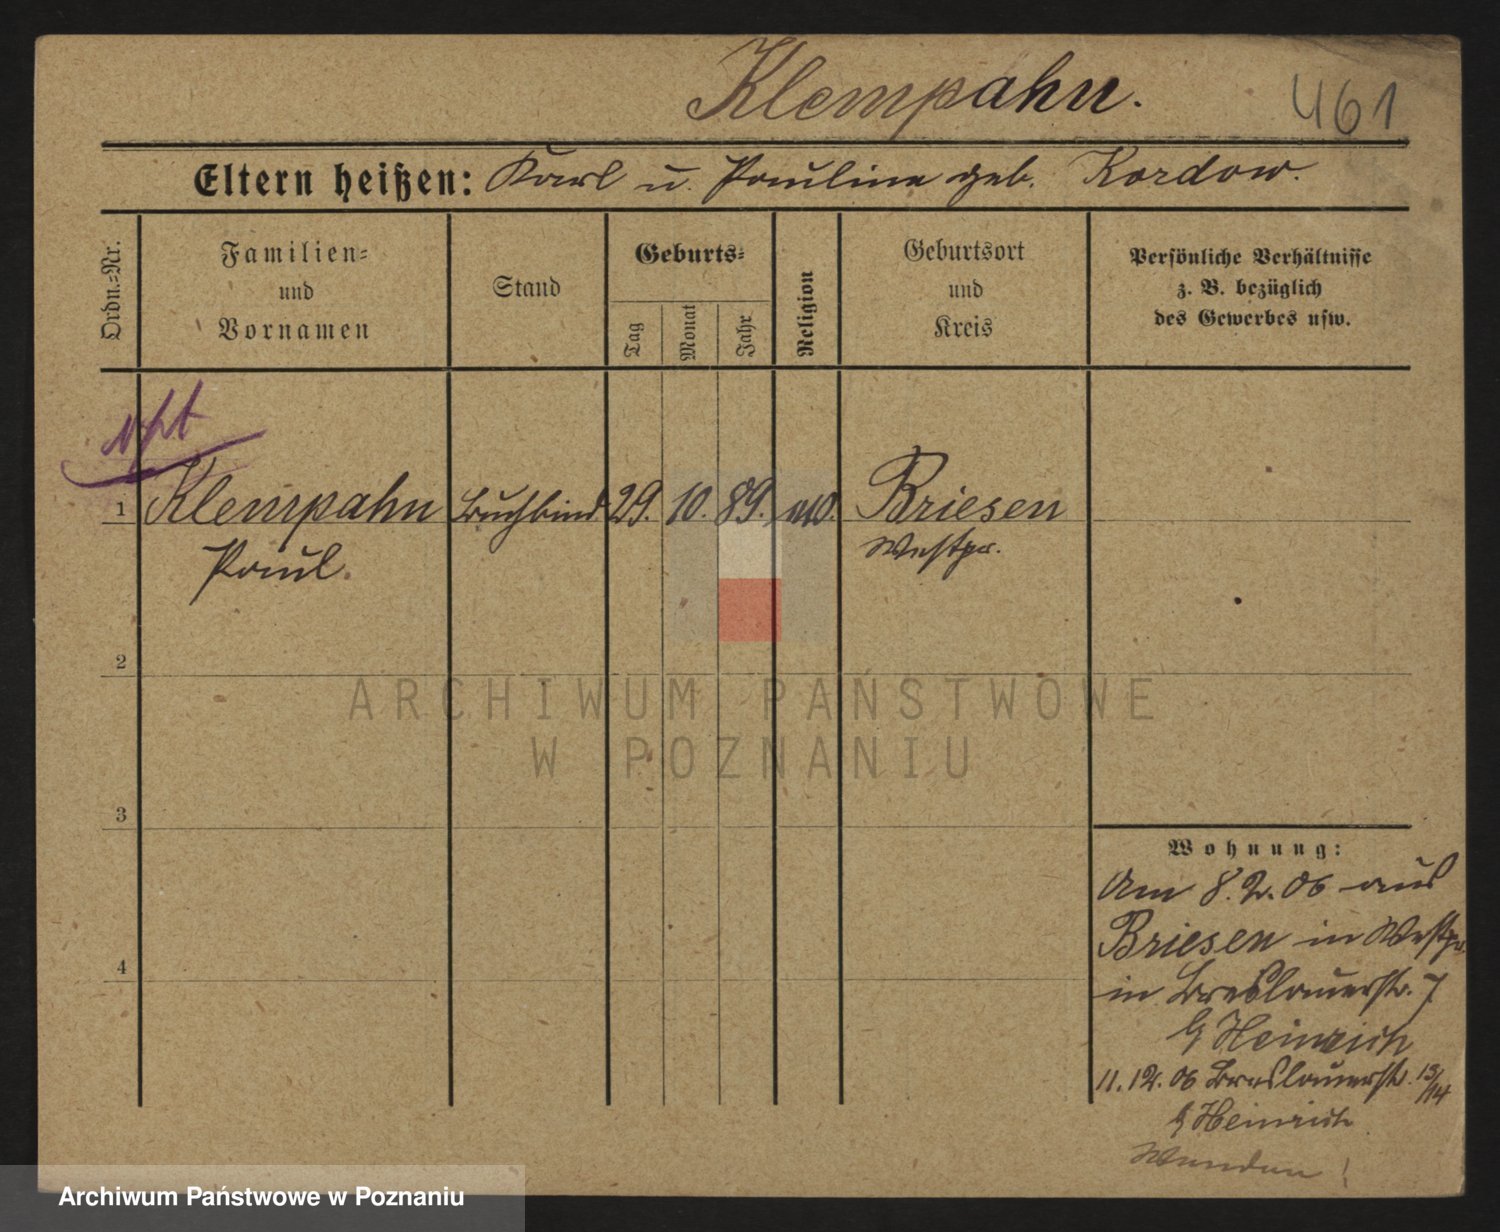 Klempahn.
461
Eltern heißen: Karl u. Pauline geb. Kordow.
Ordn.=Nr.
Familien=
und
Vornamen
Stand
Geburts=
Tag
Monat
Jahr
Religion
Geburtsort
und
Kreis
Persönliche Verhältnisse
z. B. bezüglich
des Gewerbes usw.
1 Klempahn Buchbind. 29. 10. 89. Briesen
Paul. Westpr.
2
ARCHIWUM PAŃSTWOWE
W POZNANIU
3
Wohnung:
Am 8.2.06 aus
Briesen in Westpr.
4
in Breslauerstr. 7
b/ Heinrich
11.12.06 Breslauerstr. 13/14
b/ Heinrich
Archiwum Państwowe w Poznaniu